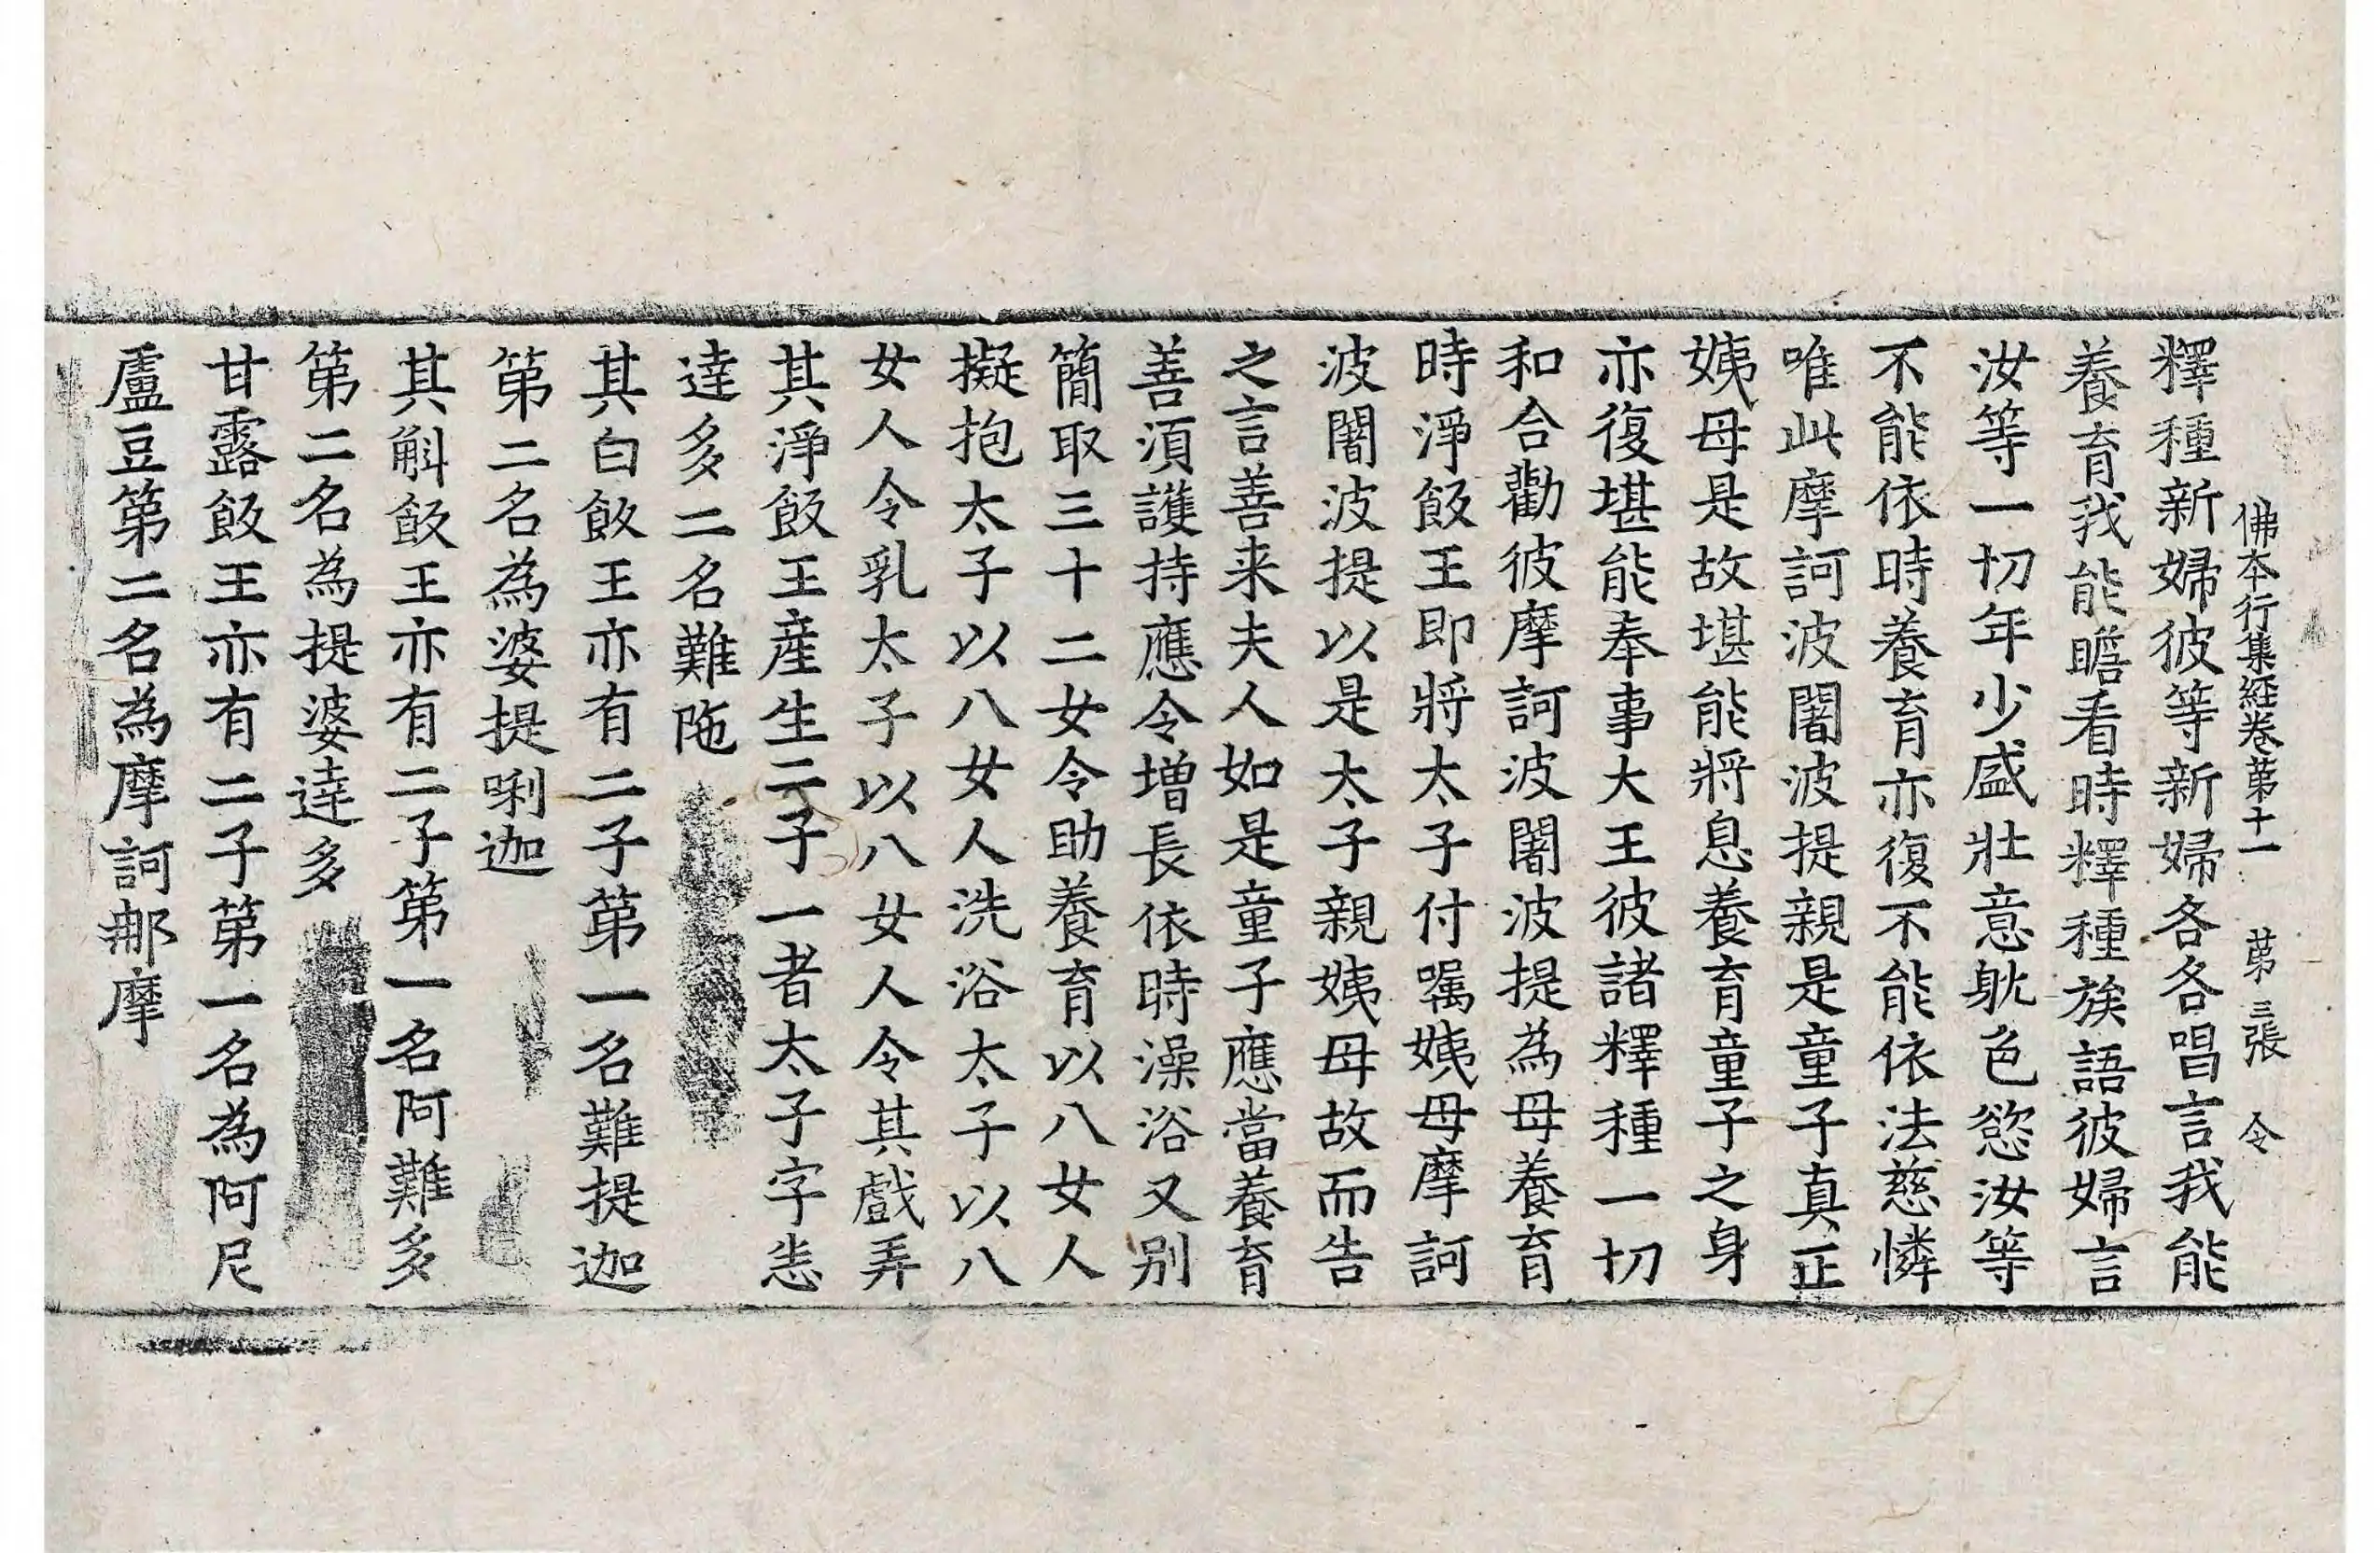 佛本行集経卷苐十一 苐三張 令
釋種新婦彼等新婦各各唱言我能
養育我能瞻看時釋種族語彼婦言
汝等一切年少盛壯意躭色慾汝等
不能依時養育亦復不能依法慈憐
唯此摩訶波闍波提親是童子真正
姨母是故堪能將息養育童子之身
亦復堪能奉事大王彼諸釋種一切
和合勸彼摩訶波闍波提為母養育
時淨飯王即將太子付嘱姨母摩訶
波闍波提以是太子親姨母故而告
之言善来夫人如是童子應當養育
善須護持應令增長依時澡浴又別
簡取三十二女令助養育以八女人
擬抱太子以八女人洗浴太子以八
女人令乳太子以八女人令其戲弄
其淨飯王産生二子一者太子字悉
達多二名難陁
其白飯王亦有二子第一名難提迦
第二名為婆提唎迦
其斛飯王亦有二子第一名阿難多
第二名為提婆達多
甘露飯王亦有二子第一名為阿尼
盧豆第二名為摩訶那摩